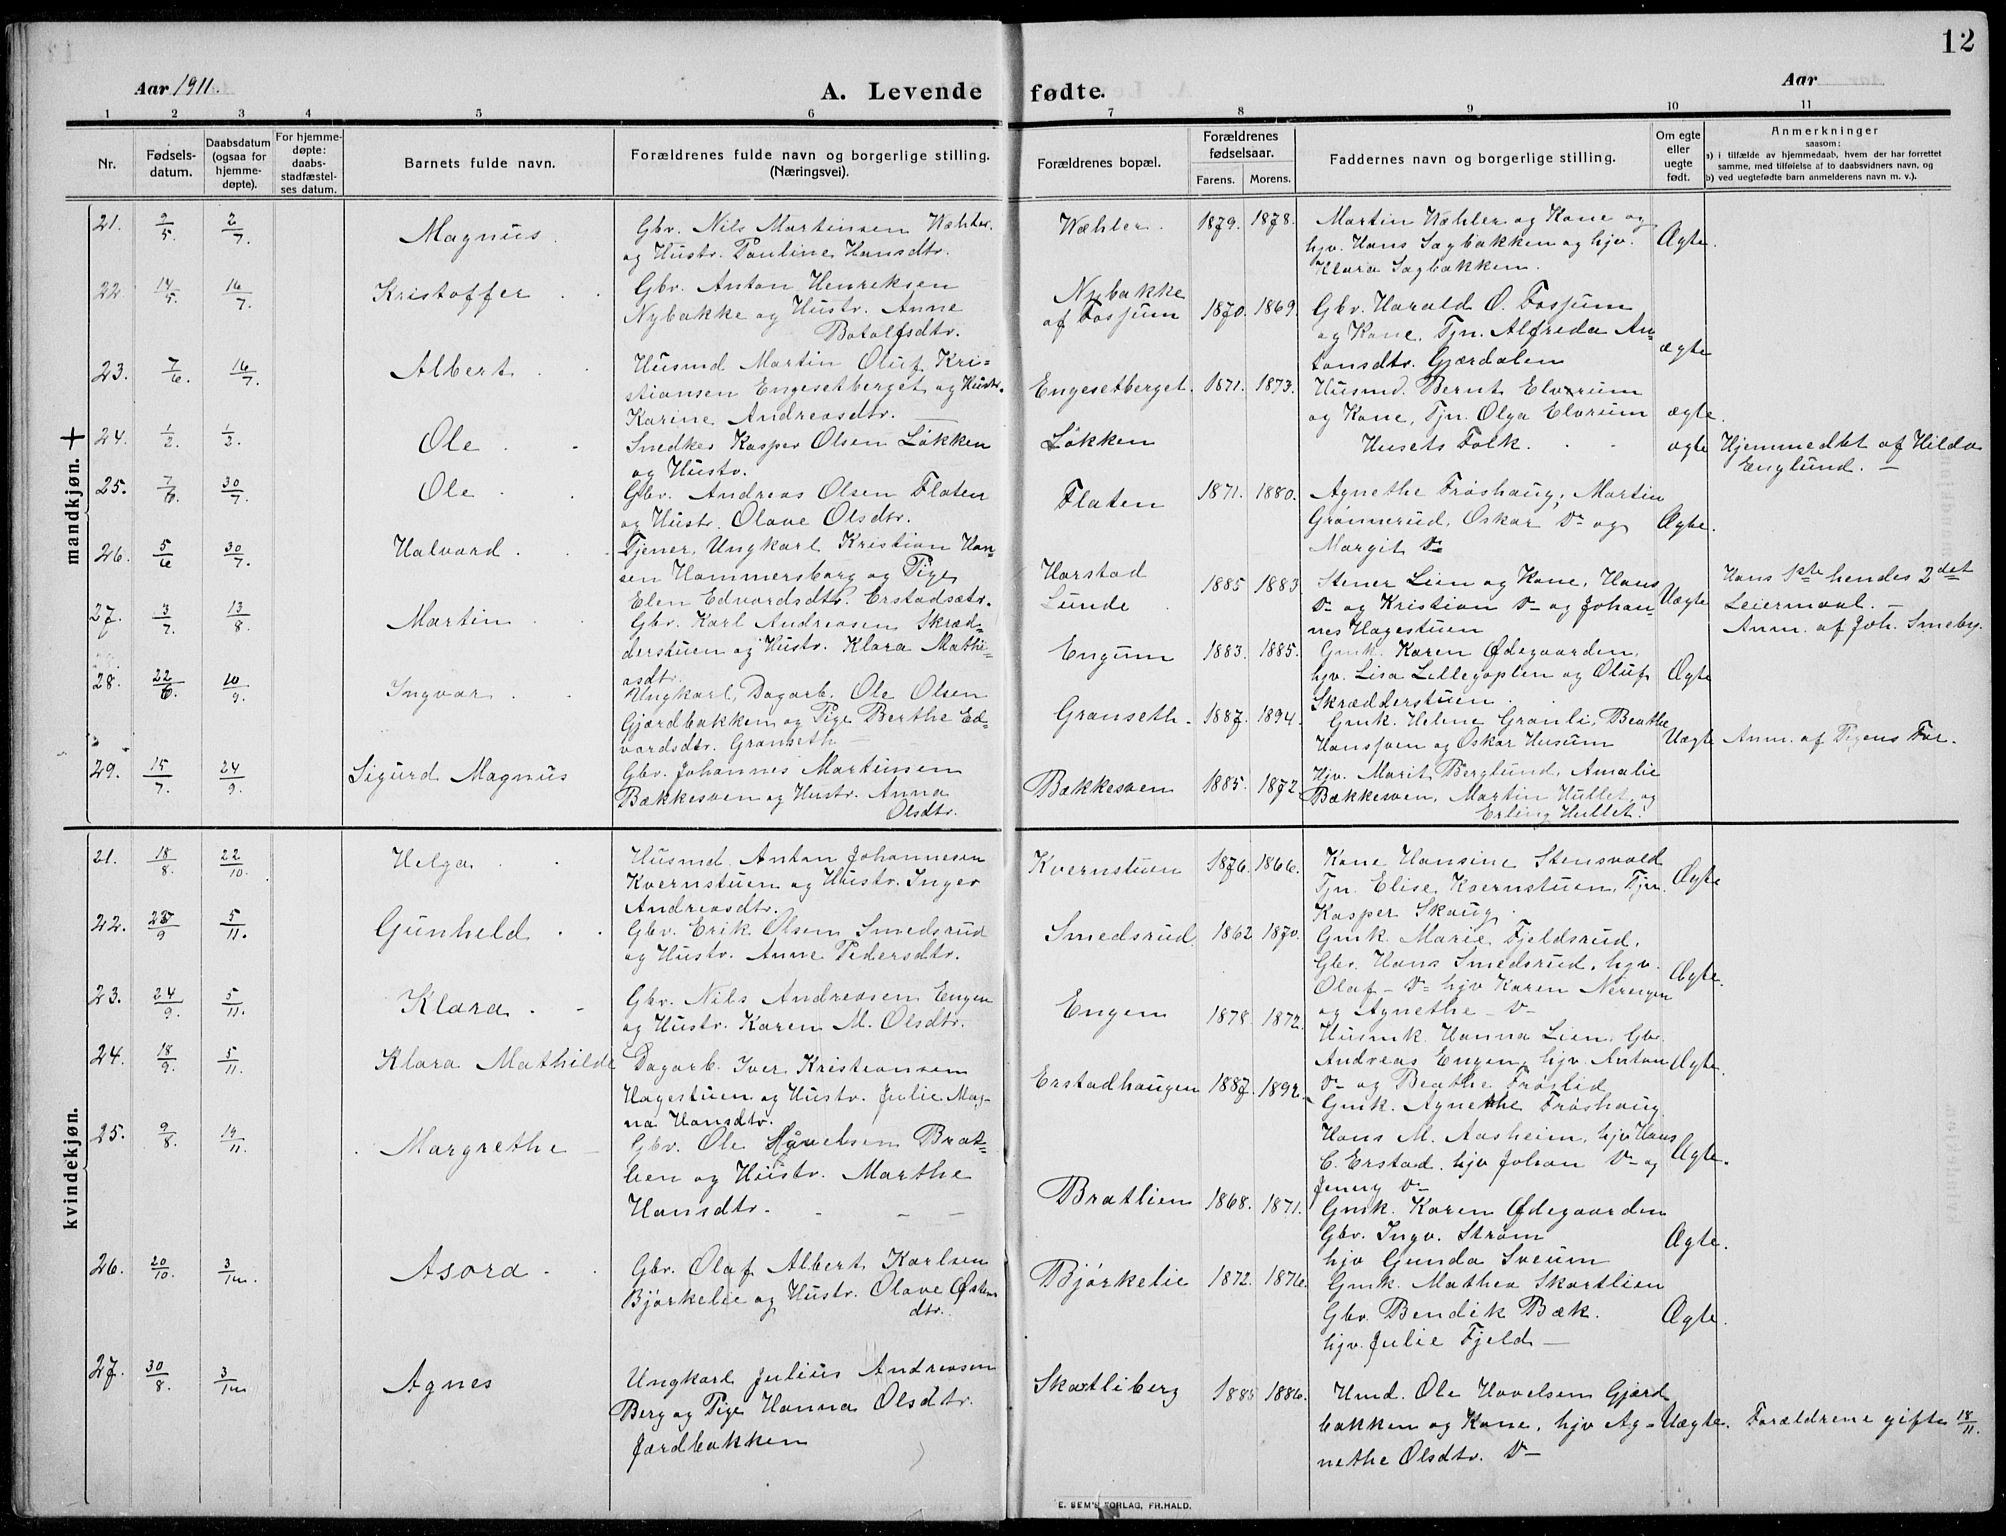 12
Aar 1911.
A. Levende fødte.
Aar
1 2 3 4 5 6 7 8 9 10 11
Nr.
Fødsels-
datum.
Daabsdatum
(ogsaa for
hjemme-
døpte).
For hjemme-
døpte:
daabs-
stadfæstel-
ses datum.
Barnets fulde navn.
Forældrenes fulde navn og borgerlige stilling.
(Næringsvei).
Forældrenes bopæl.
Forældrenes
fødselsaar.
Farens. Morens.
Faddernes navn og borgerlige stilling.
Om egte
eller
uegte
født.
Anmerkninger
saasom:
a) i tilfælde av hjemmedaab, hvem der har forrettet
samme, med tilføielse af to daabsvidners navn, og
b) ved uegtefødte barn anmelderens navn m. v.).
mandkjøn.
21. 9/5. 2/7. Magnus.
Gbr. Nils Martinsen Wæhler.
og Hustr. Pauline Hansdtr.
Wæhler. 1879. 1878.
Martin Wæhler og Kone og
hjv. Hans Sagbakken og hjv.
Klara Sagbakken.
Ægte.
22 14/5. 16/7. Kristoffer
Gbr. Anton Henriksen
Nybakke og Hustr. Anne
Botolfsdtr.
Nybakke
af Fosjum 1870. 1869.
Gbr. Harald O. Fosjum
og Kone, Tjn. Alfreda An-
tonsdtr. Gjærdalen
ægte
23. 7/6. 16/7. Albert
Husmd Martin Oluf Kri-
stiansen Engesetberget og Hustr.
Karine Andreasdtr.
Engesetberget. 1871. 1873.
Husmd. Bernt Elvrum
og Kone, Tjn. Olga Elvrum
ægte.
+ 24. 1/2. 1/3. Ole
Snedker Kasper Olsen Løkken
og Hustr.
Løkken
Husets Folk.
ægte
Hjemmedbt af Hilda
Englund. —
25. 7/6. 30/7. Ole
Gbr. Andreas Olsen Flaten
og Hustr. Olave Olsdtr.
Flaten 1871. 1880.
Agnethe Frøshaug, Martin
Grønnerud, Oskar Do og
Margit Do
Ægte.
26. 5/6 30/7. Halvard
Tjener, Ungkarl Kristian Han-
sen Hammersborg og Pige
Elen Edvardsdtr. Erstadsætr.
Harstad
Lunde 1885 1883
Stener Lien og Kone, Hans
Do og Kristian Do og Johan
nes Hagestuen
Uægte
Hans 1ste hendes 2det
Leiermaal. —
Anm. af Joh. Smeby.
27. 3/7. 13/8. Martin
Gbr. Karl Andreasen Skræd-
derstuen og Hustr. Klara Mathi-
asdtr.
Engum 1883. 1885.
Gmk. Karen Ødegaarden,
hjv. Lisa Lillegoplen og Oluf
Skrædderstuen
Ægte
28. 22/6. 10/9. Ingvar
Ungkarl, Dagarb. Ole Olsen
Gjærdbakken og Pige Berthe Ed-
vardsdtr. Granseth
Granseth. 1887. 1894.
Gmk. Helene Granli, Beathe
Hansveen og Oskar Husum
Uægte
Anm. af Pigens Far.
29. 15/7. 24/9. Sigurd Magnus
Gbr. Johannes Martinsen
Bækkesven og Hustr. Anna
Olsdtr.
Bækkesven 1885. 1872
Hjv. Marit Berglund, Amalie
Bækkesven, Martin Hullet og
Erling Hullet.
kvindekjøn.
21. 18/8. 22/10. Helga
Husmd. Anton Johannesen
Kvernstuen og Hustr. Inger
Andreasdtr.
Kvernstuen 1876. 1866.
Kone Hansine Stensvold
Tjn. Elise Kvernstuen, Tjn.
Kasper Skaug.
Ægte
22. 9 5/11. Gunheld
Gbr. Erik Olsen Smedsrud
og Hustr. Anne Pedersdtr.
Smedsrud 1862 1870.
Gmk. Marie Fjeldsrud,
Gbr. Hans Smedsrud, hjv.
Olaf — Do hjv Karen Nerengen
og Agnethe — Do
Ægte.
23. 24/9. 5/11. Klara
Gbr. Nils Andreasen Engen
og Hustr. Karen M. Olsdtr.
Engen 1878. 1872.
Husmk. Hanna Lien, Gbr.
Andreas Engen, hjv. Anton
Do og Beathe Frøslid
Ægte.
24. 18/9. 5/11. Klara Mathilde
Dagarb. Iver Kristiansen
Hagestuen og Hustr. Julie Mag-
na Hansdtr.
Erstadhaugen 1887. 1892.
Gmk. Agnethe Frøshaug
Hans M. Aasheim, hjv Hans
C. Erstad, hjv Johan Do og
Jenny Do
Ægte.
25. 9/8. 19/11. Margrethe
Gbr. Ole Håvelsen Brat-
lien og Hustr. Marthe
Hansdtr.
Bratlien 1868. 1871.
Gmk. Karen Ødegaarden
Gbr. Ingv. Strøm
hjv Gunda Sveum
Ægte.
26. 20/10. 3/12. Asora
Gbr. Olaf Albert Karlsen
Bjørkelie og Hustr. Olave Østens
dtr.
Bjørkelie 1872. 1876.
Gmk. Mathea Skartlien
Gbr. Bendik Bæk.
hjv. Julie Fjeld —
Ægte.
27. 30/8. 3/12 Agnes
Ungkarl Julius Andreasen
Berg og Pige Hanna Olsdtr.
Jærdbakken
Skartliberg 1885 1886.
Hmd. Ole Hovelsen Gjærd
bakken og Kone, hjv Ag-
nethe Olsdtr. Do
Uægte.
Forældrene gifte 18/11.
E. SEM'S FORLAG, FR.HALD.